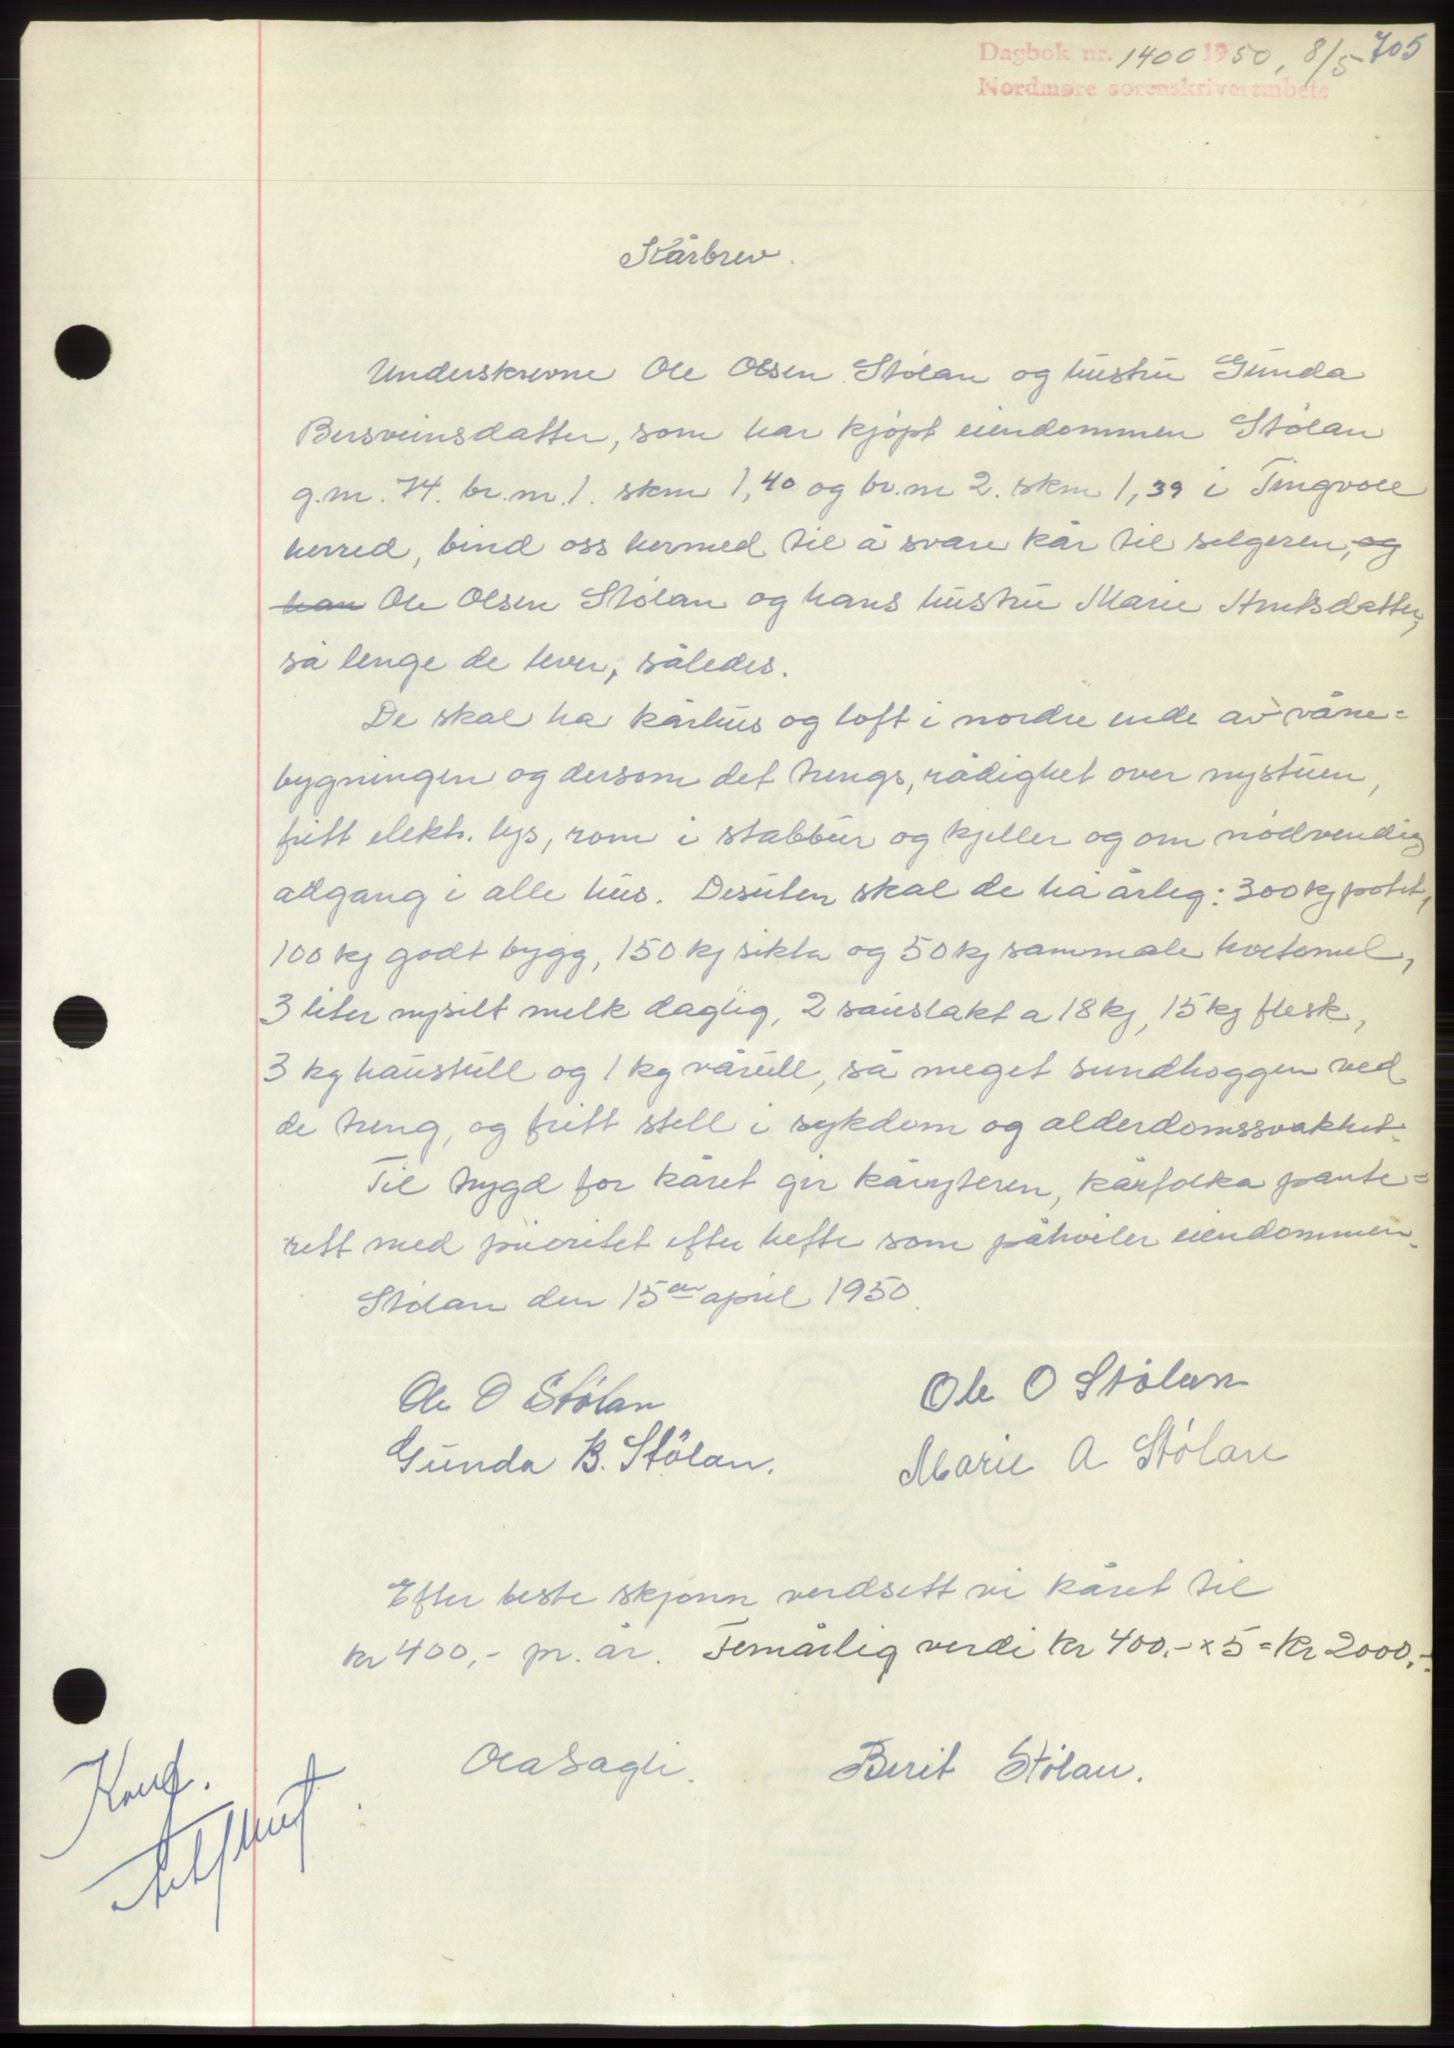 705
Dagbok nr. 1400 1950, 8/5
Nordmøre sorenskriverembete
Kårbrev.
Underskrevne Ole Olsen Stølan og hustru Gunda
Bersveinsdatter, som har kjøpt eiendommen Stølan
g.nr. 74. br.nr. 1. skm 1,40 og br.nr 2. skm 1,39 i Tingvoll
herred, bind oss hermed til å svare kår til selgeren, og
han Ole Olsen Stølan og hans hustru Marie Arntsdatter,
så lenge de lever, således.
De skal ha kårhus og loft i nordre ende av våne=
bygningen og dersom det trengs, rådighet over nystuen,
fritt elektr. lys, rom i stabbur og kjeller og om nødvendig
adgang i alle hus. Desuten skal de ha årlig: 300 kg potet,
100 kg godt bygg, 150 kg sikta og 50 kg sammale hvetemel,
3 liter nysilt melk daglig, 2 saueslakt a 18 kg, 15 kg flesk,
3 kg haustull og 1 kg vårull, så meget sundhoggen ved
de treng, og fritt stell i sykdom og alderdomssvakhet.
Til trygd for kåret gir kåryteren, kårfolka pante=
rett med prioritet efter hefte som påhviler eiendommen.
Stølan den 15de april 1950.
Ole O Stølan
Ole O Stølan
Gunda B. Stølan.
Marie A Stølan
Efter beste skjønn verdsett vi kåret til
kr 400,- pr. år. Femårlig verdi kr 400.- x 5 = Kr 2000.-
Ola Sagli.
Berit Stølan.
Konf.